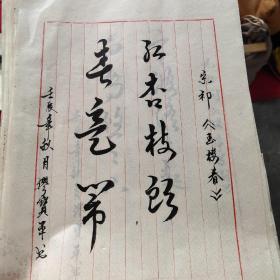 宋祁《玉楼春》
红杏枝头
春意闹
壬辰年秋月